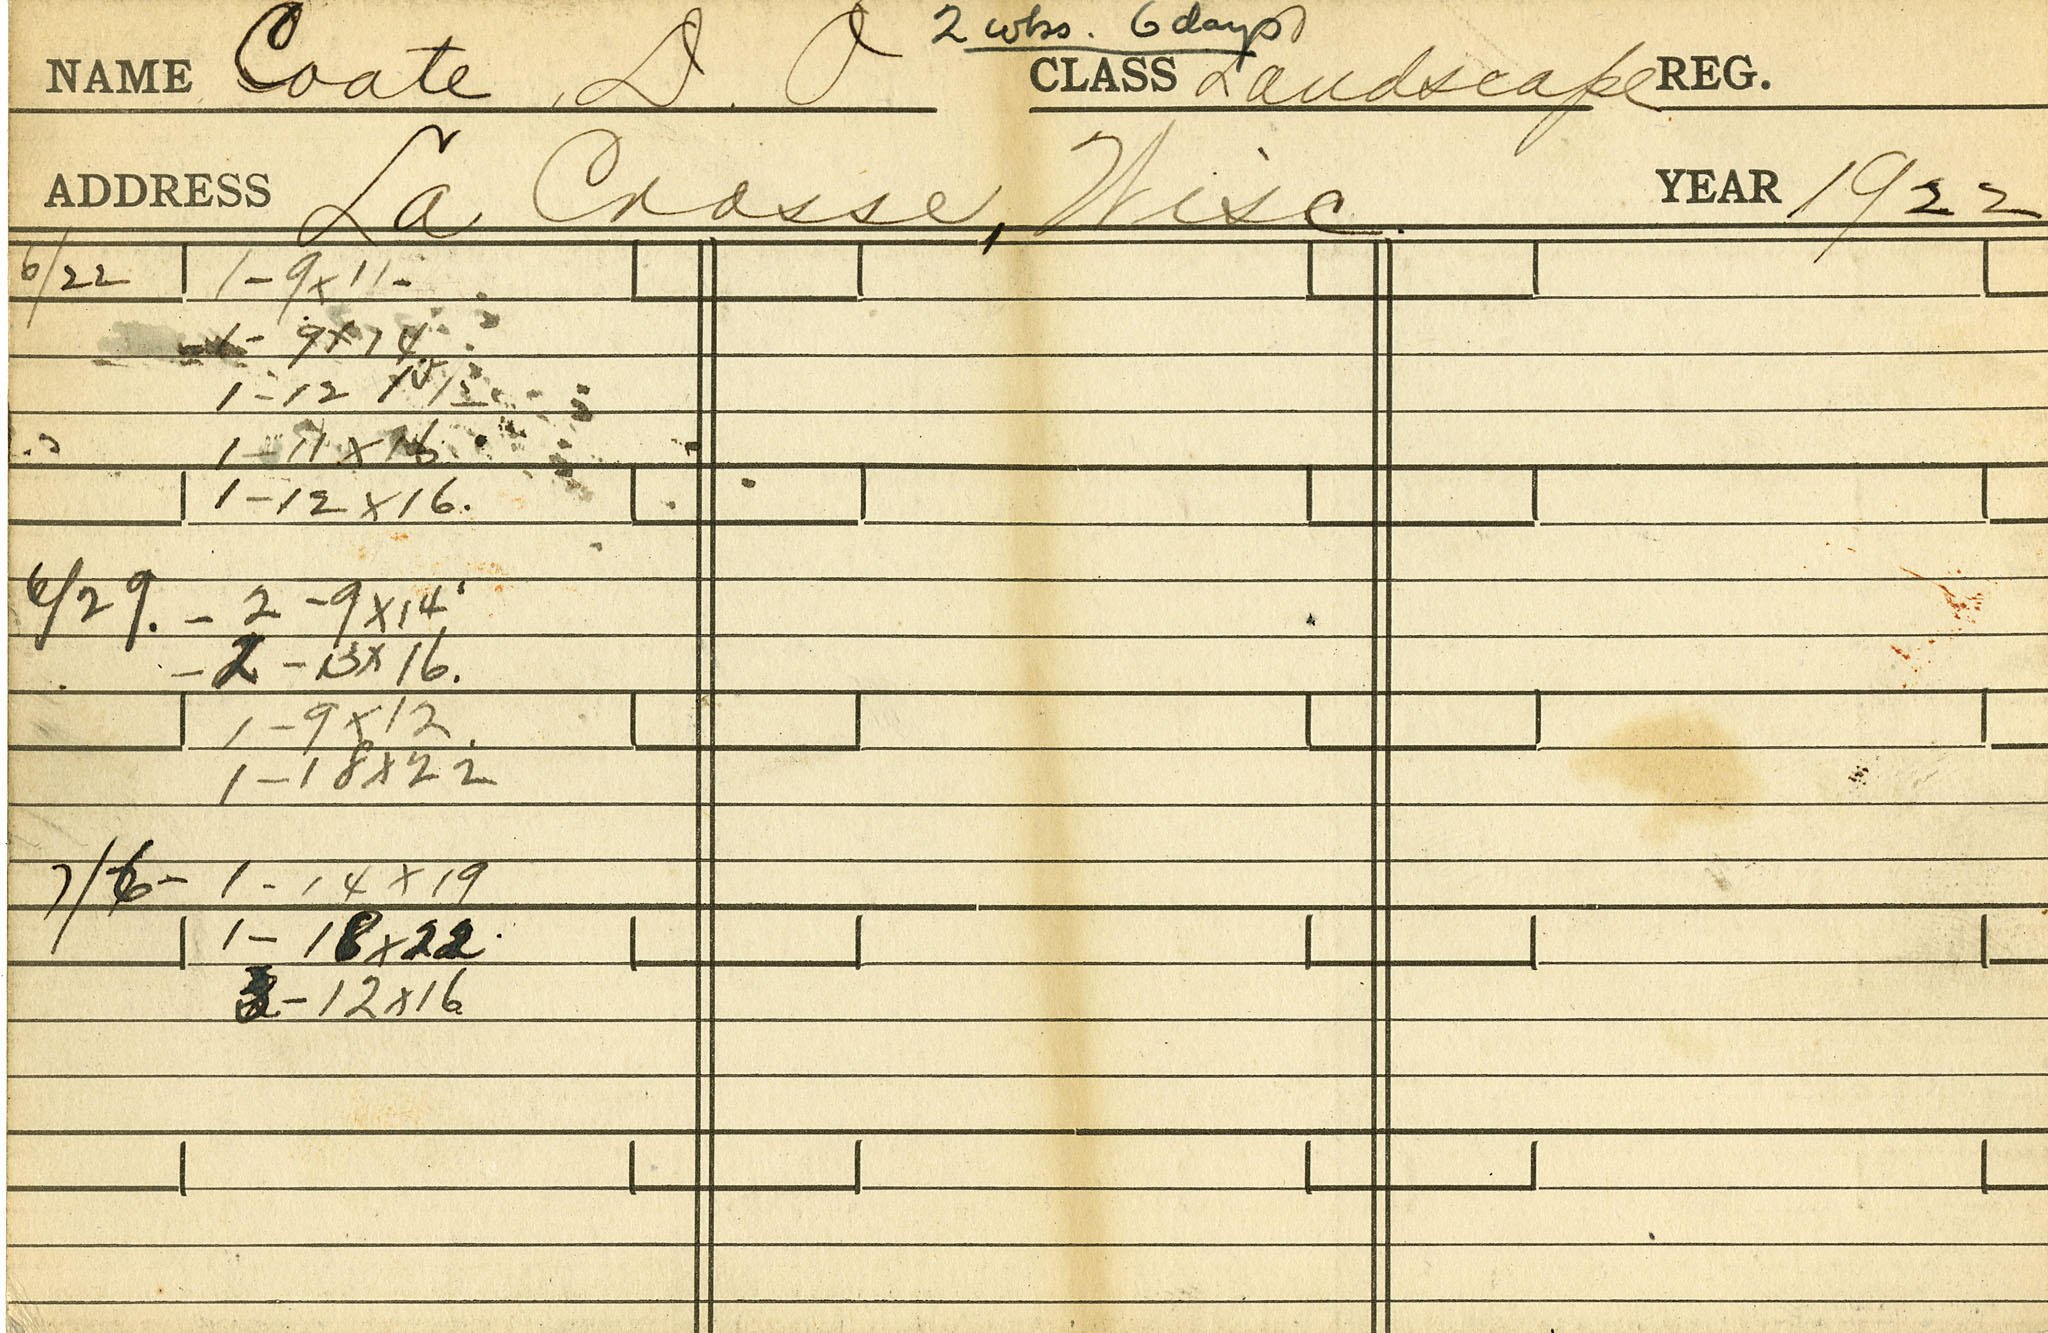 2 wks. 6 days
NAME Coate, D. O CLASS Landscape REG.
ADDRESS La Crosse, Wisc. YEAR 1922
6/22 1-9x11-
1- 9x14
1-12
1-11x16
1-12x16.
6/29. - 2 -9x14
- 2 - 13x16.
1-9x12.
1-18x22
7/6- 1-14x19
1- 18x22.
-12x16